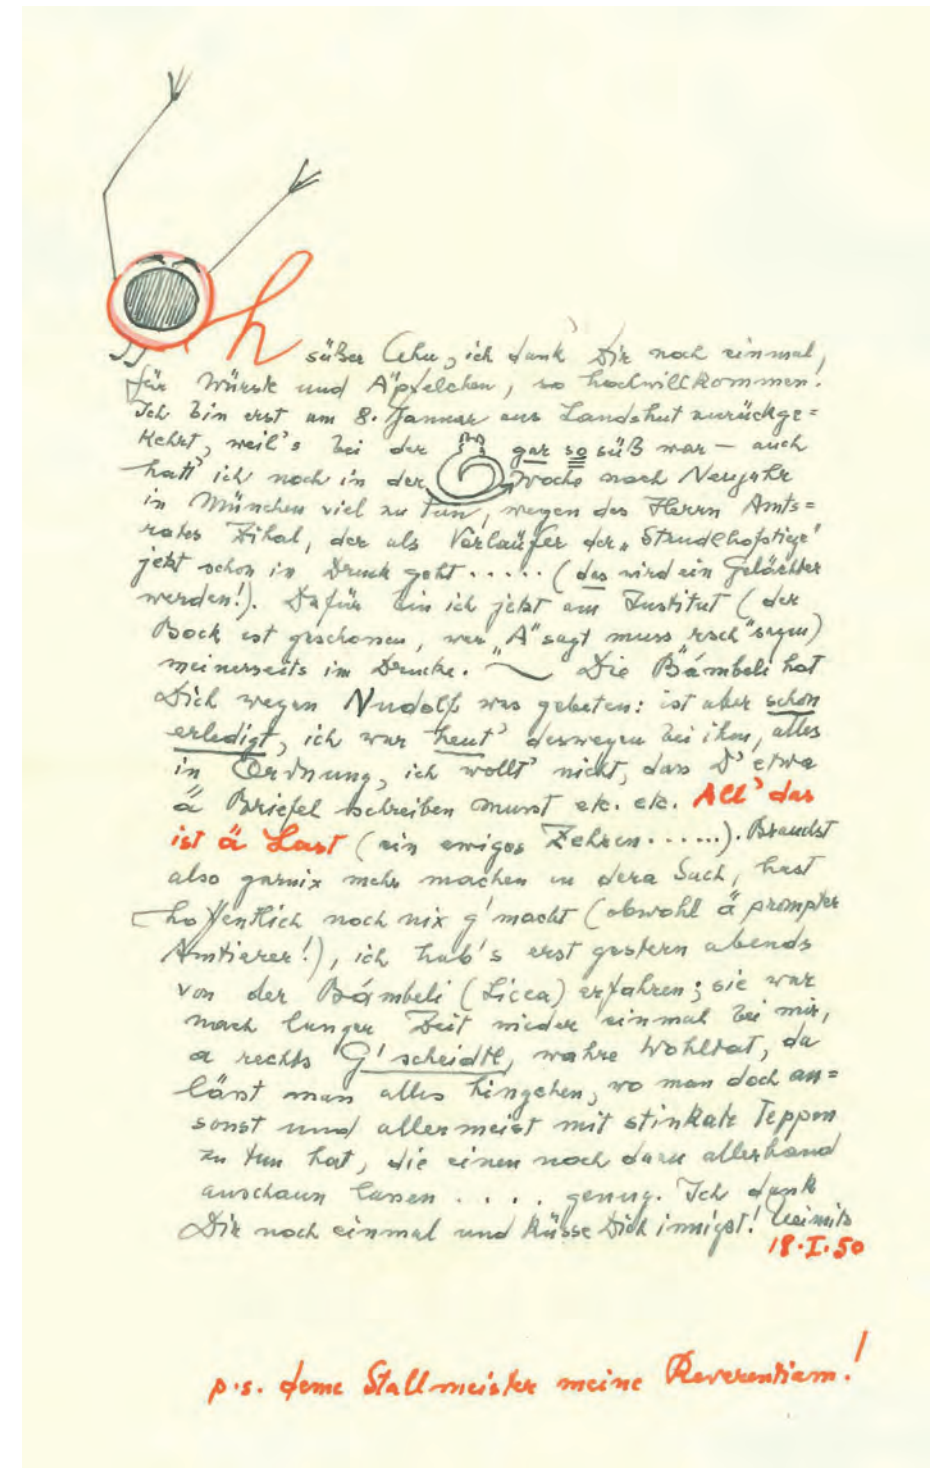 Oh süßer Ahu, ich dank Dir noch einmal,
für Würste und Äpfelchen, so hochwillkommen.
Ich bin erst am 8. Januar aus Landshut zurückge=
kehrt, weil's bei der gar so süß war — auch
hatt' ich noch in der Woche nach Neujahr
in München viel zu tun, wegen des Herrn Amts=
rates Zihal, der als Vorläufer der „Strudlhofstiege"
jetzt schon in Druck geht ..... (das wird ein Gelächter
werden!). Dafür bin ich jetzt am Institut (der
Bock ist geschossen, wer „A" sagt muss „rsch" sagen)
meinerseits im Drucke. Die Bámbeli hat
Dich wegen Nudolf was gebeten: ist aber schon
erledigt, ich war heut' deswegen bei ihm, alles
in Ordnung, ich wollt' nicht, dass D' etwa
ä Briefel schreiben musst etc. etc. All' das
ist ä Last (ein ewiges Zehren ......). Brauchst
also garnix mehr machen in dera Sach, hast
hoffentlich noch nix g'macht (obwohl ä prompter
Amtierer!), ich hab's erst gestern abends
von der Bámbeli (Licea) erfahren; sie war
nach langer Zeit wieder einmal bei mir,
a rechts G'scheidtl, wahre Wohltat, da
lässt man alles hingehen, wo man doch an=
sonst und allermeist mit stinkate Teppen
zu tun hat, die einen noch dazu allerhand
anschaun lassen .... genug. Ich dank
Dir noch einmal und küsse Dich innigst! Heimito
18.I.50
p.s. deme Stallmeister meine Reverentiam!